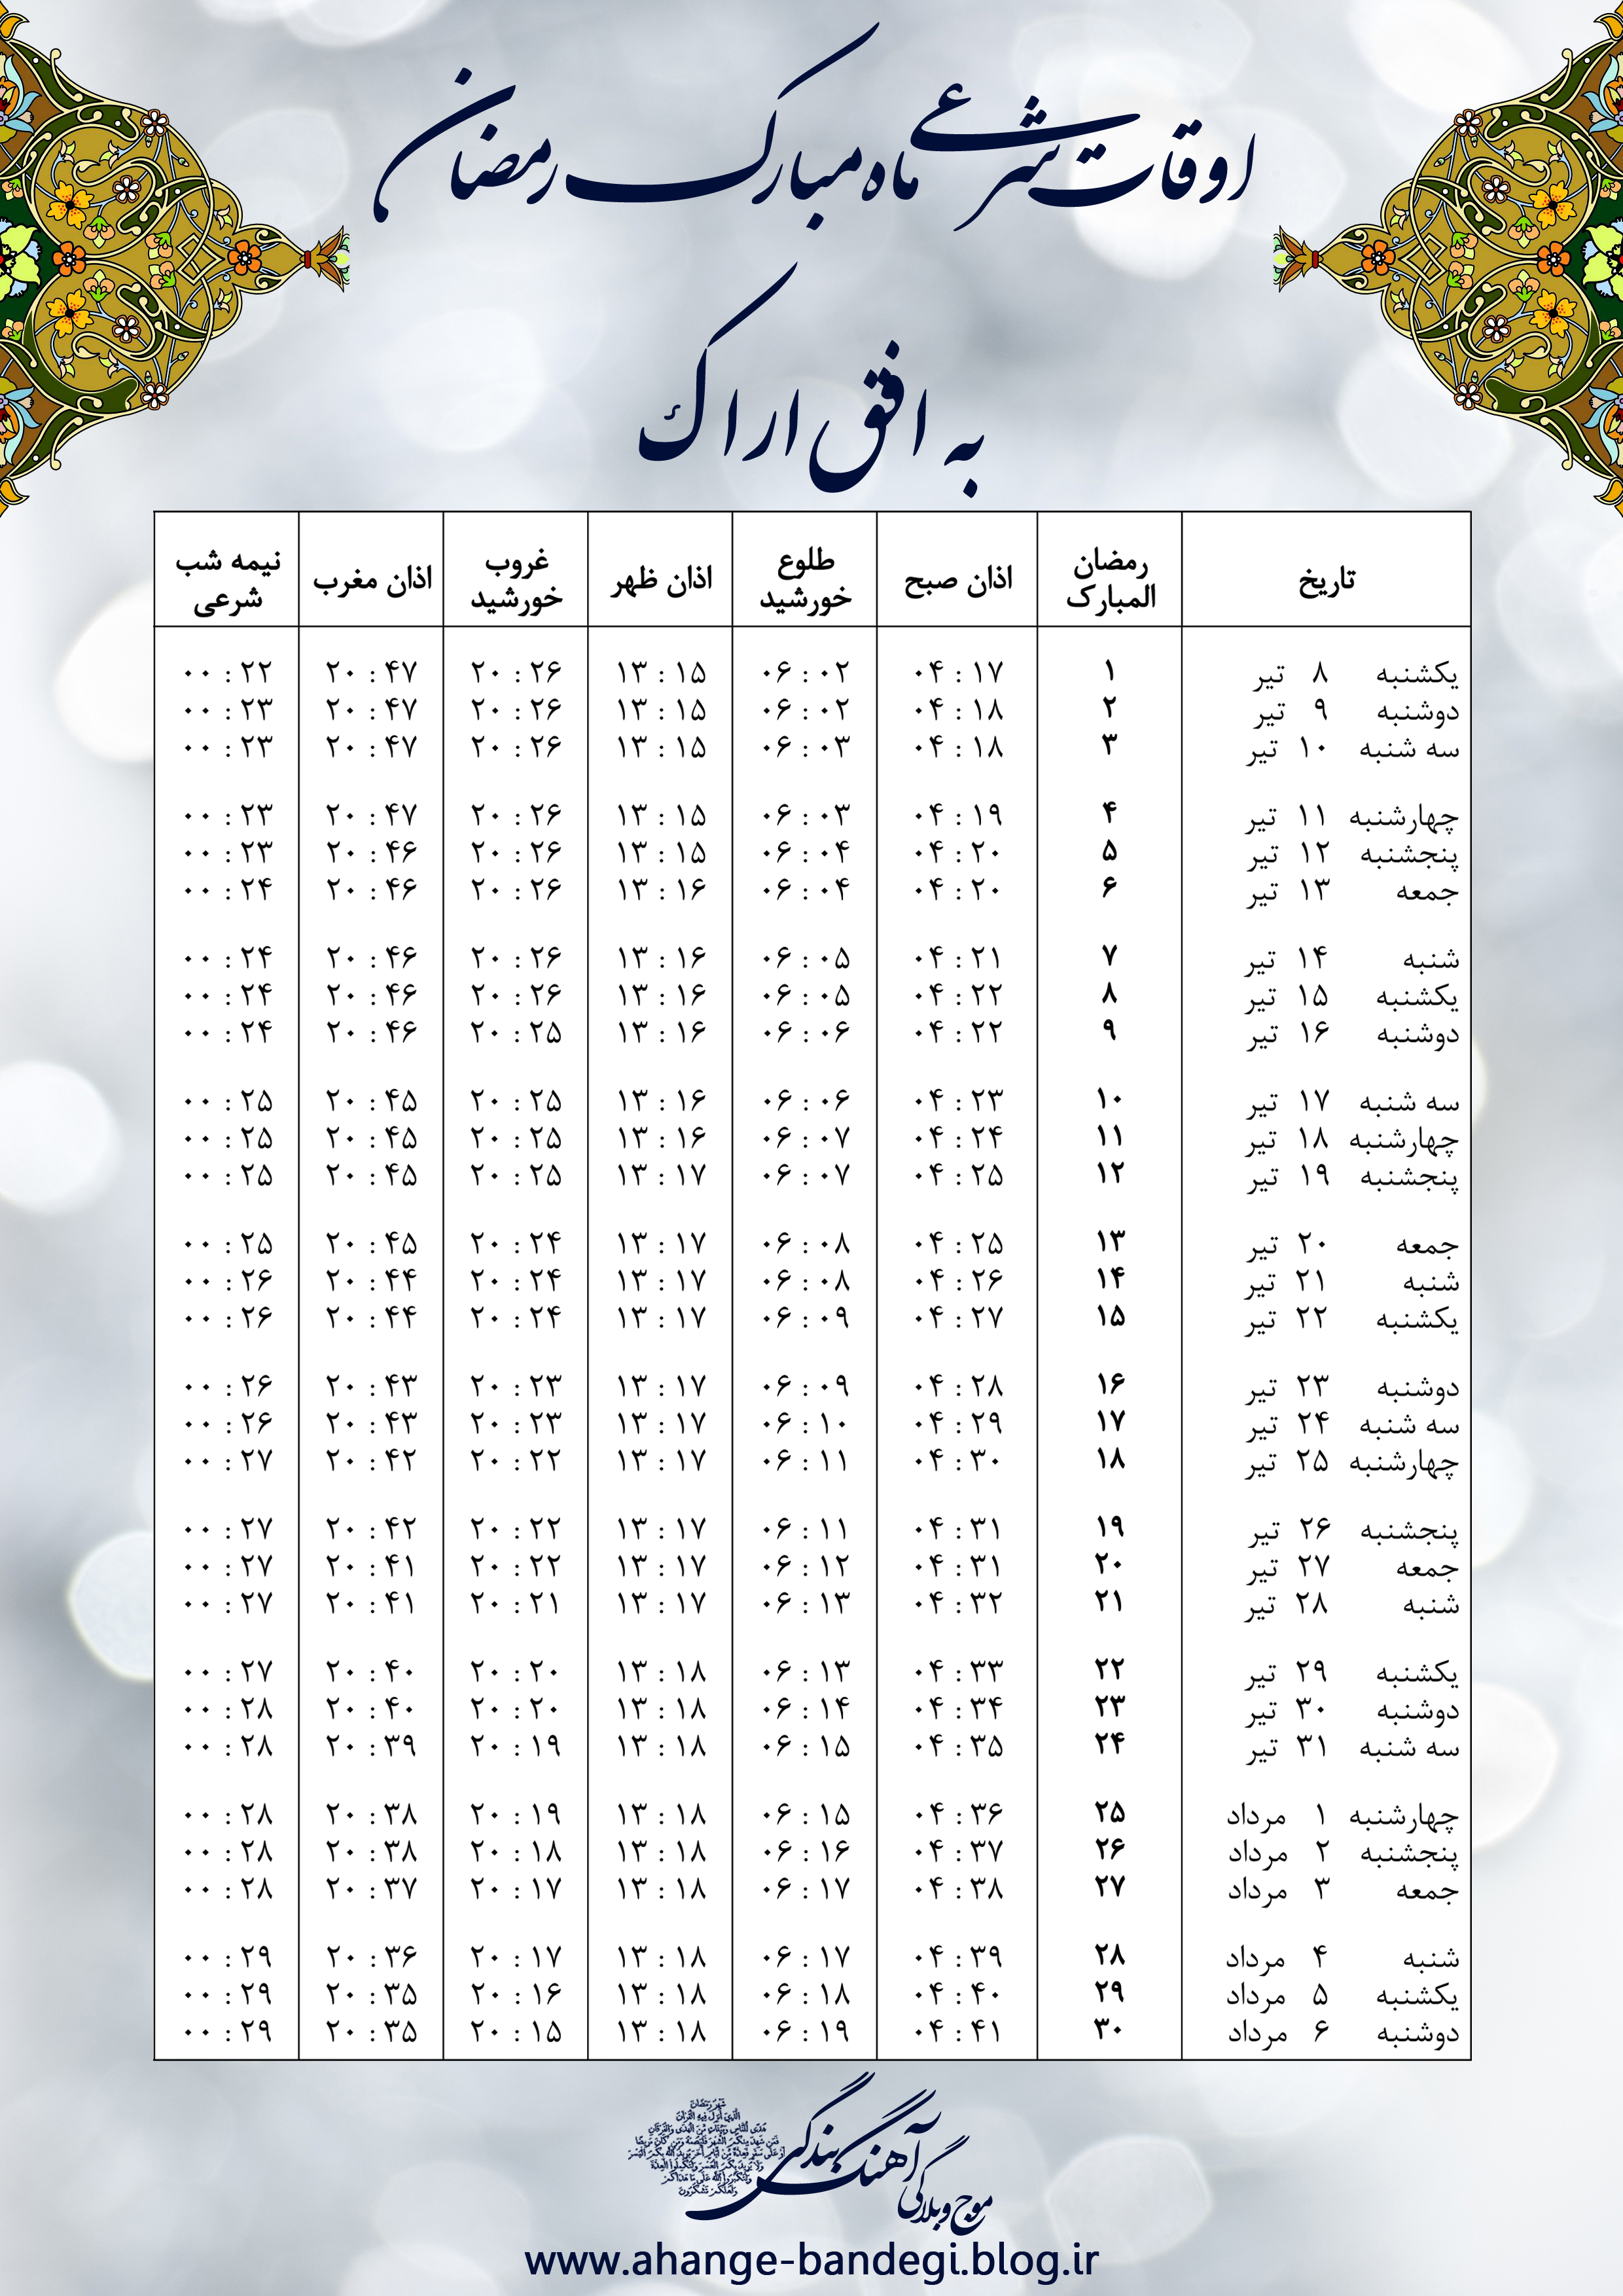 اوقات شرعی ماه مبارک رمضان
به افق اراک
تاریخ رمضان المبارک اذان صبح طلوع خورشید اذان ظهر غروب خورشید اذان مغرب نیمه شب شرعی
یکشنبه ۸ تیر ۱ ۰۴:۱۷ ۰۶:۰۲ ۱۳:۱۵ ۲۰:۲۶ ۲۰:۴۷ ۰۰:۲۲
دوشنبه ۹ تیر ۲ ۰۴:۱۸ ۰۶:۰۲ ۱۳:۱۵ ۲۰:۲۶ ۲۰:۴۷ ۰۰:۲۳
سه شنبه ۱۰ تیر ۳ ۰۴:۱۸ ۰۶:۰۳ ۱۳:۱۵ ۲۰:۲۶ ۲۰:۴۷ ۰۰:۲۳
چهارشنبه ۱۱ تیر ۴ ۰۴:۱۹ ۰۶:۰۳ ۱۳:۱۵ ۲۰:۲۶ ۲۰:۴۷ ۰۰:۲۳
پنجشنبه ۱۲ تیر ۵ ۰۴:۲۰ ۰۶:۰۴ ۱۳:۱۵ ۲۰:۲۶ ۲۰:۴۶ ۰۰:۲۳
جمعه ۱۳ تیر ۶ ۰۴:۲۰ ۰۶:۰۴ ۱۳:۱۶ ۲۰:۲۶ ۲۰:۴۶ ۰۰:۲۴
شنبه ۱۴ تیر ۷ ۰۴:۲۱ ۰۶:۰۵ ۱۳:۱۶ ۲۰:۲۶ ۲۰:۴۶ ۰۰:۲۴
یکشنبه ۱۵ تیر ۸ ۰۴:۲۲ ۰۶:۰۵ ۱۳:۱۶ ۲۰:۲۶ ۲۰:۴۶ ۰۰:۲۴
دوشنبه ۱۶ تیر ۹ ۰۴:۲۲ ۰۶:۰۶ ۱۳:۱۶ ۲۰:۲۵ ۲۰:۴۶ ۰۰:۲۴
سه شنبه ۱۷ تیر ۱۰ ۰۴:۲۳ ۰۶:۰۶ ۱۳:۱۶ ۲۰:۲۵ ۲۰:۴۵ ۰۰:۲۵
چهارشنبه ۱۸ تیر ۱۱ ۰۴:۲۴ ۰۶:۰۷ ۱۳:۱۶ ۲۰:۲۵ ۲۰:۴۵ ۰۰:۲۵
پنجشنبه ۱۹ تیر ۱۲ ۰۴:۲۵ ۰۶:۰۷ ۱۳:۱۷ ۲۰:۲۵ ۲۰:۴۵ ۰۰:۲۵
جمعه ۲۰ تیر ۱۳ ۰۴:۲۵ ۰۶:۰۸ ۱۳:۱۷ ۲۰:۲۴ ۲۰:۴۵ ۰۰:۲۵
شنبه ۲۱ تیر ۱۴ ۰۴:۲۶ ۰۶:۰۸ ۱۳:۱۷ ۲۰:۲۴ ۲۰:۴۴ ۰۰:۲۶
یکشنبه ۲۲ تیر ۱۵ ۰۴:۲۷ ۰۶:۰۹ ۱۳:۱۷ ۲۰:۲۴ ۲۰:۴۴ ۰۰:۲۶
دوشنبه ۲۳ تیر ۱۶ ۰۴:۲۸ ۰۶:۰۹ ۱۳:۱۷ ۲۰:۲۳ ۲۰:۴۳ ۰۰:۲۶
سه شنبه ۲۴ تیر ۱۷ ۰۴:۲۹ ۰۶:۱۰ ۱۳:۱۷ ۲۰:۲۳ ۲۰:۴۳ ۰۰:۲۶
چهارشنبه ۲۵ تیر ۱۸ ۰۴:۳۰ ۰۶:۱۱ ۱۳:۱۷ ۲۰:۲۲ ۲۰:۴۲ ۰۰:۲۷
پنجشنبه ۲۶ تیر ۱۹ ۰۴:۳۱ ۰۶:۱۱ ۱۳:۱۷ ۲۰:۲۲ ۲۰:۴۲ ۰۰:۲۷
جمعه ۲۷ تیر ۲۰ ۰۴:۳۱ ۰۶:۱۲ ۱۳:۱۷ ۲۰:۲۲ ۲۰:۴۱ ۰۰:۲۷
شنبه ۲۸ تیر ۲۱ ۰۴:۳۲ ۰۶:۱۳ ۱۳:۱۷ ۲۰:۲۱ ۲۰:۴۱ ۰۰:۲۷
یکشنبه ۲۹ تیر ۲۲ ۰۴:۳۳ ۰۶:۱۳ ۱۳:۱۸ ۲۰:۲۰ ۲۰:۴۰ ۰۰:۲۷
دوشنبه ۳۰ تیر ۲۳ ۰۴:۳۴ ۰۶:۱۴ ۱۳:۱۸ ۲۰:۲۰ ۲۰:۴۰ ۰۰:۲۸
سه شنبه ۳۱ تیر ۲۴ ۰۴:۳۵ ۰۶:۱۵ ۱۳:۱۸ ۲۰:۱۹ ۲۰:۳۹ ۰۰:۲۸
چهارشنبه ۱ مرداد ۲۵ ۰۴:۳۶ ۰۶:۱۵ ۱۳:۱۸ ۲۰:۱۹ ۲۰:۳۸ ۰۰:۲۸
پنجشنبه ۲ مرداد ۲۶ ۰۴:۳۷ ۰۶:۱۶ ۱۳:۱۸ ۲۰:۱۸ ۲۰:۳۸ ۰۰:۲۸
جمعه ۳ مرداد ۲۷ ۰۴:۳۸ ۰۶:۱۷ ۱۳:۱۸ ۲۰:۱۷ ۲۰:۳۷ ۰۰:۲۸
شنبه ۴ مرداد ۲۸ ۰۴:۳۹ ۰۶:۱۷ ۱۳:۱۸ ۲۰:۱۷ ۲۰:۳۶ ۰۰:۲۹
یکشنبه ۵ مرداد ۲۹ ۰۴:۴۰ ۰۶:۱۸ ۱۳:۱۸ ۲۰:۱۶ ۲۰:۳۵ ۰۰:۲۹
دوشنبه ۶ مرداد ۳۰ ۰۴:۴۱ ۰۶:۱۹ ۱۳:۱۸ ۲۰:۱۵ ۲۰:۳۵ ۰۰:۲۹
موج وبلاگی آهنگ بندگی
www.ahange-bandegi.blog.ir